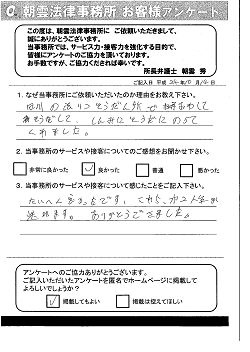 朝雲法律事務所 お客様アンケート
この度は、朝雲法律事務所に ご依頼いただきまして、
誠にありがとうございます。
当事務所では、サービス力・接客力を強化する目的で、
皆様にアンケートのご協力を頂いております。
お手数ですが、ご協力くだされば幸いです。
所長弁護士 朝雲 秀
ご記入日 平成 24年10月
1. なぜ当事務所にご依頼いただいたのか理由をお教え下さい。
くれました。
2. 当事務所のサービスや接客についてのご感想をお聞かせ下さい。
非常に良かった 良かった 普通 悪かった
3. 当事務所のサービスや接客について感じたことをご記入下さい。
たいへん よかったです。これから
ます。ありがとうございました。
アンケートへのご協力ありがとうございます。
ご記入いただいたアンケートを匿名でホームページに掲載して
よろしいでしょうか？
掲載してもよい 掲載は控えてほしい